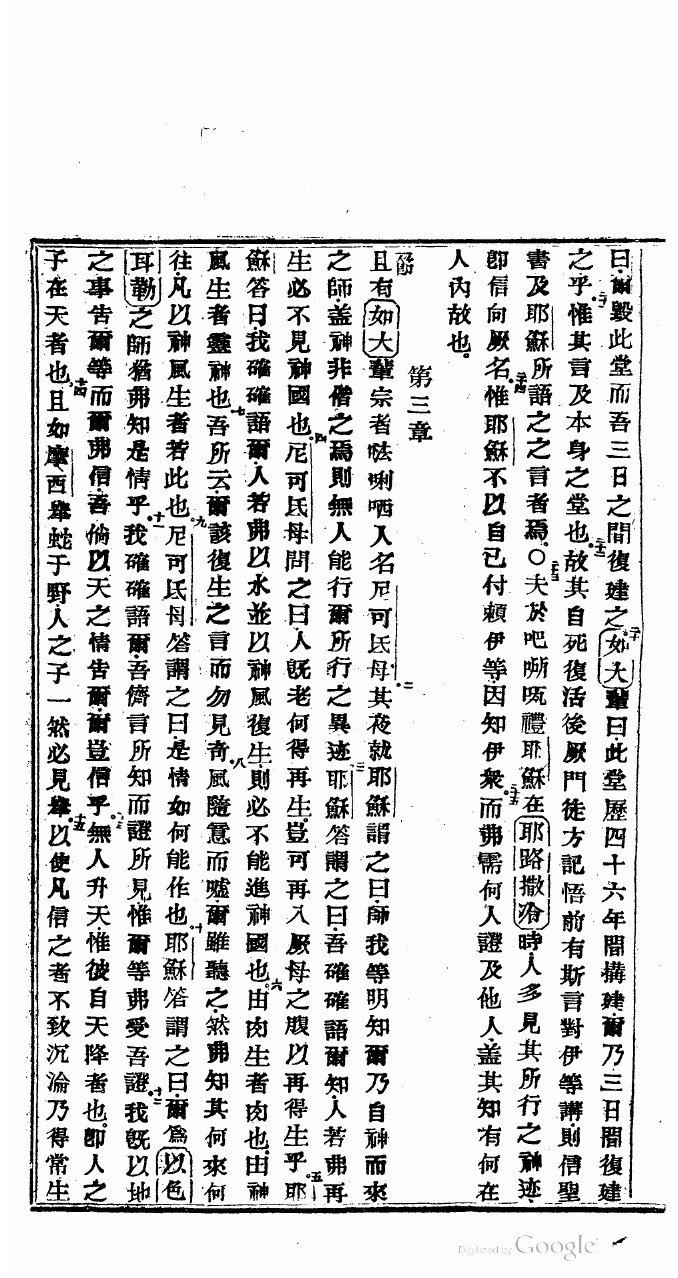 曰爾毀此堂而吾三日之間復建之如大輩曰此堂歷四十六年間搆建爾乃三日間復建
之乎惟其言及本身之堂也故其自死復活後厥門徒方記悟前有斯言對伊等講則信聖
書及耶穌所語之之言者焉○夫於吧𠵽呱禮耶穌在耶路撒冷時人多見其所行之神迹
卽信向厥名惟耶穌不以自已付賴伊等因知伊衆而弗需何人證及他人盖其知有何在
人內故也
第三章
且有如大輩宗者㕸唎哂人名尼可氐母其夜就耶穌謂之曰師我等明知爾乃自神而來
之師盖神非偕之焉則無人能行爾所行之異迹耶穌答謂之曰吾確確語爾知人若弗再
生必不見神國也尼可氐母問之曰人旣老何得再生豈可再入厥母之腹以再得生乎耶
穌答曰我確確語爾人若弗以水並以神風復生則必不能進神國也由肉生者肉也由神
風生者靈神也吾所云爾該復生之言而勿見奇風隨意而噓爾雖聽之然弗知其何來何
往凡以神風生者若此也尼可氐母答謂之曰是情如何能作也耶穌答謂之曰爾爲以色
耳勒之師猶弗知是情乎我確確語爾吾儕言所知而證所見惟爾等弗受吾證我旣以地
之事告爾等而爾弗信吾倘以天之情告爾爾豈信乎無人升天惟彼自天降者也卽人之
子在天者也且如摩西舉蛇于野人之子一然必見舉以使凡信之者不致沉淪乃得常生
Digitized by Google